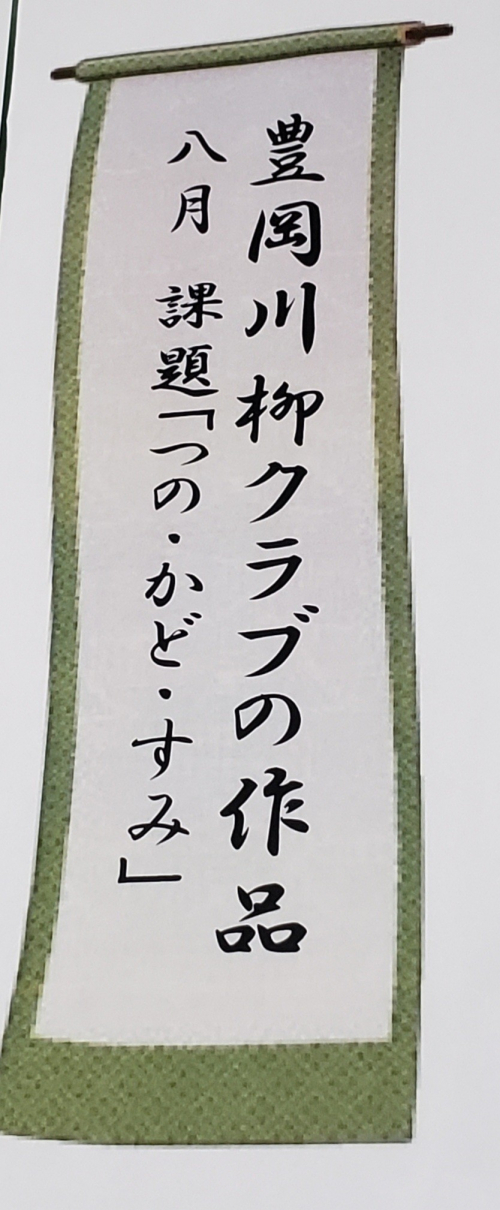 豊岡川柳クラブの作品
八月　課題「つの・かど・すみ」